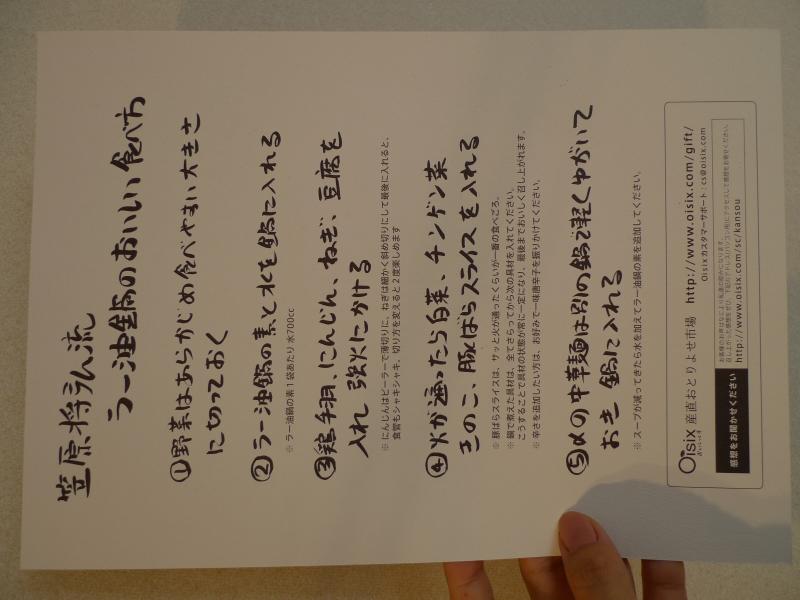 笠原将弘流
ラー油鍋のおいしい食べ方
①野菜はあらかじめ食べやすい大きさ
に切っておく
②ラー油鍋の素と水を鍋に入れる
※ ラー油鍋の素1袋あたり 水700cc
③鶏手羽、にんじん、ねぎ、豆腐を
入れ 強火にかける
※ にんじんはピーラーで薄切りに、ねぎは細かく斜め切りにして最後に入れると、
食管もシャキシャキ。切り方を変えると2度楽しめます
④火が通ったら白菜、チンゲン菜
きのこ、豚ばらスライスを入れる
※ 豚ばらスライスは、サッと火が通ったくらいが一番の食べごろ。
※ 鍋で煮えた具材は、全てさらってから次の具材を入れてください。
こうすることで具材の状態が常に一定になり、最後までおいしく召し上がれます。
※ 辛さを追加したい方は、お好みで一味唐辛子を振りかけてください。
⑤〆の中華麺は別の鍋で軽くゆがいて
おき 鍋に入れる
※ スープが減ってきたら水を加えてラー油鍋の素を追加してください。
Oisix 産直おとりよせ市場 http://www.oisix.com/gift/
Oisixカスタマーサポート:cs@oisix.com
感想をお聞かせください
http://www.oisix.com/sc/kansou